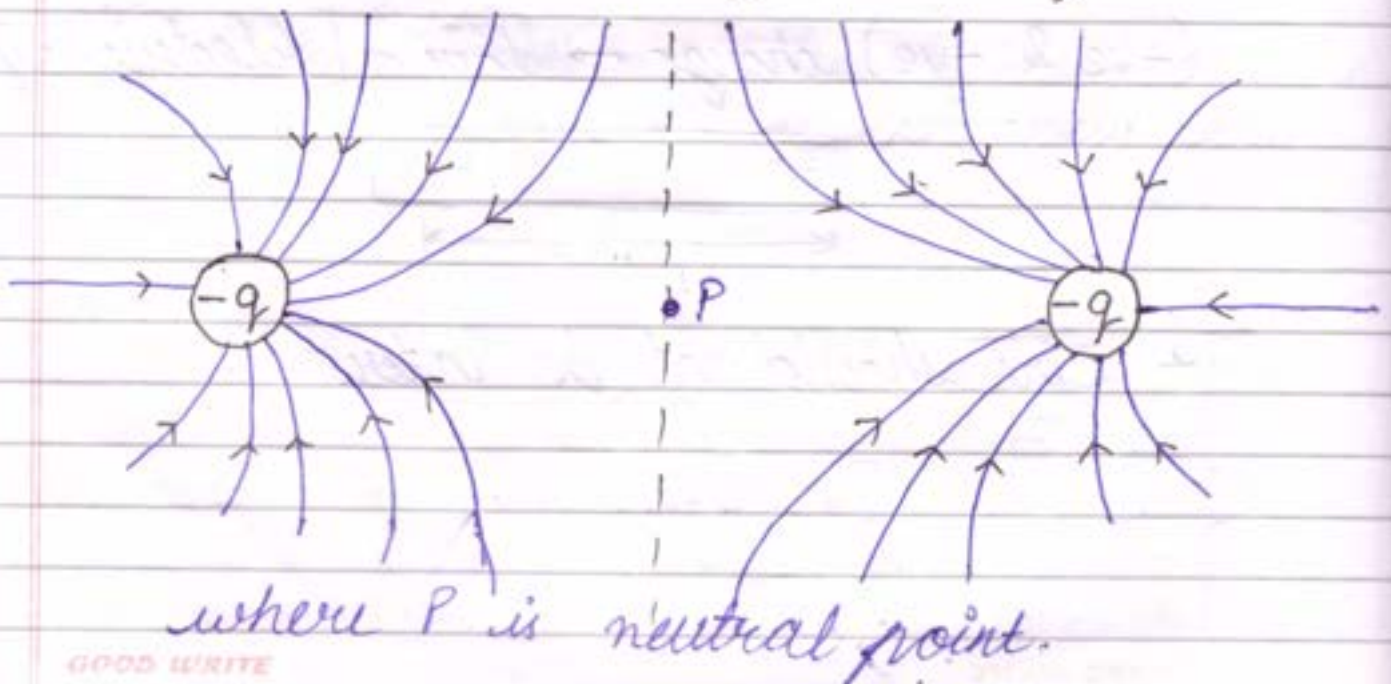 -q P -q
where P is neutral point.
GOOD WRITE